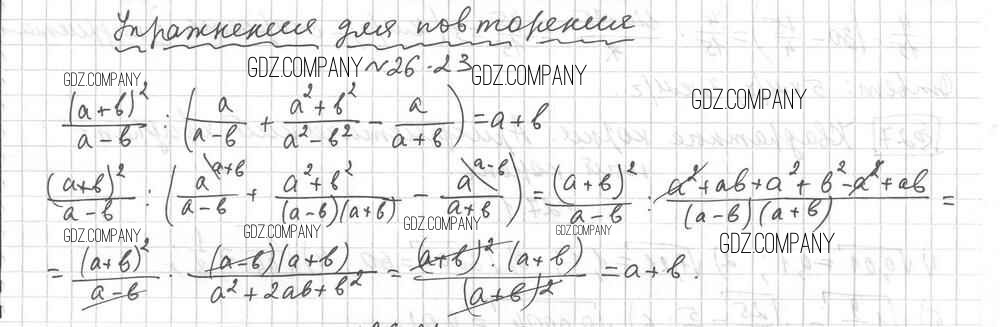 Упражнения для повторения
GDZ.COMPANY №26.23 GDZ.COMPANY
GDZ.COMPANY GDZ.COMPANY
(a+b)²/(a-b) : (a/(a-b) + (a²+b²)/(a²-b²) - a/(a+b)) = a+b
(a+b)²/(a-b) : (a^(a+b)/(a-b) + (a²+b²)/((a-b)(a+b)) - a^(a-b)/(a+b)) = (a+b)²/(a-b) : (a²+ab+a²+b²-a²+ab)/((a-b)(a+b)) =
GDZ.COMPANY GDZ.COMPANY GDZ.COMPANY GDZ.COMPANY
= (a+b)²/(a-b) · ((a-b)(a+b))/(a²+2ab+b²) = ((a+b)²·(a+b))/(a+b)² = a+b.